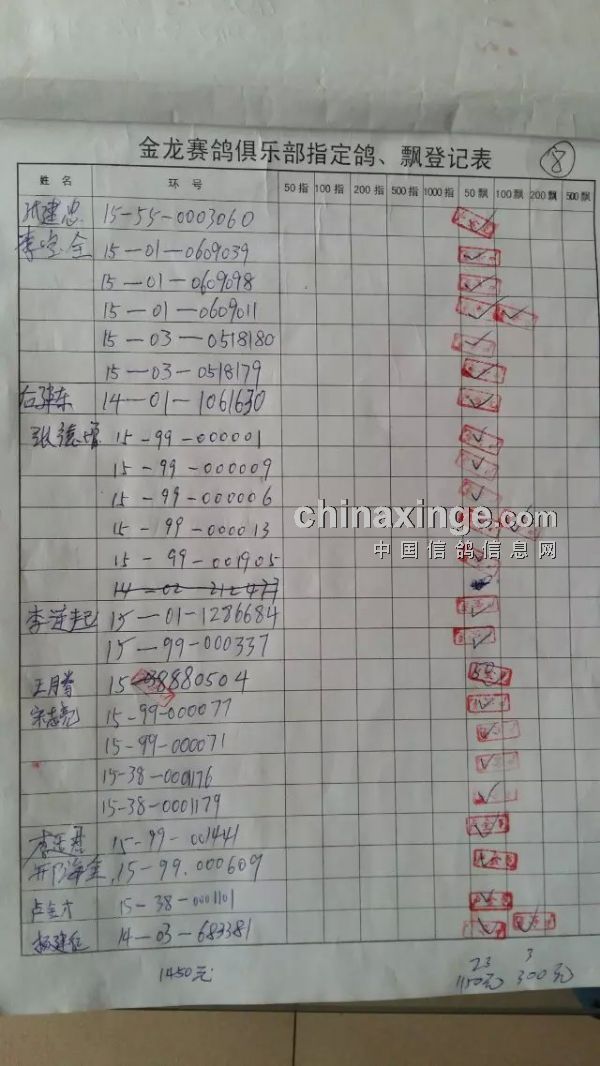 金龙赛鸽俱乐部指定鸽、飘登记表 8
姓名 环号 50指 100指 200指 500指 1000指 50飘 100飘 200飘 500飘
张建忠 15-55-0003060
李宝全 15-01-0609039
15-01-0609098
15-01-0609011
15-03-0518180
15-03-0518179
右建东 14-01-1061630
张德增 15-99-000001
15-99-000009
15-99-000006
15-99-000013
15-99-001905
14-02-212477
李进起 15-01-1286684
15-99-000337
王月省 15-38880504
宋志亮 15-99-000077
15-99-000071
15-38-0001176
15-38-0001179
15-99-001441
15-99.000609
卢全才 15-38-0001101
杨建 14-03-683381
23 3
1450元 1150元 300元
chinaxinge.com
中国信鸽信息网